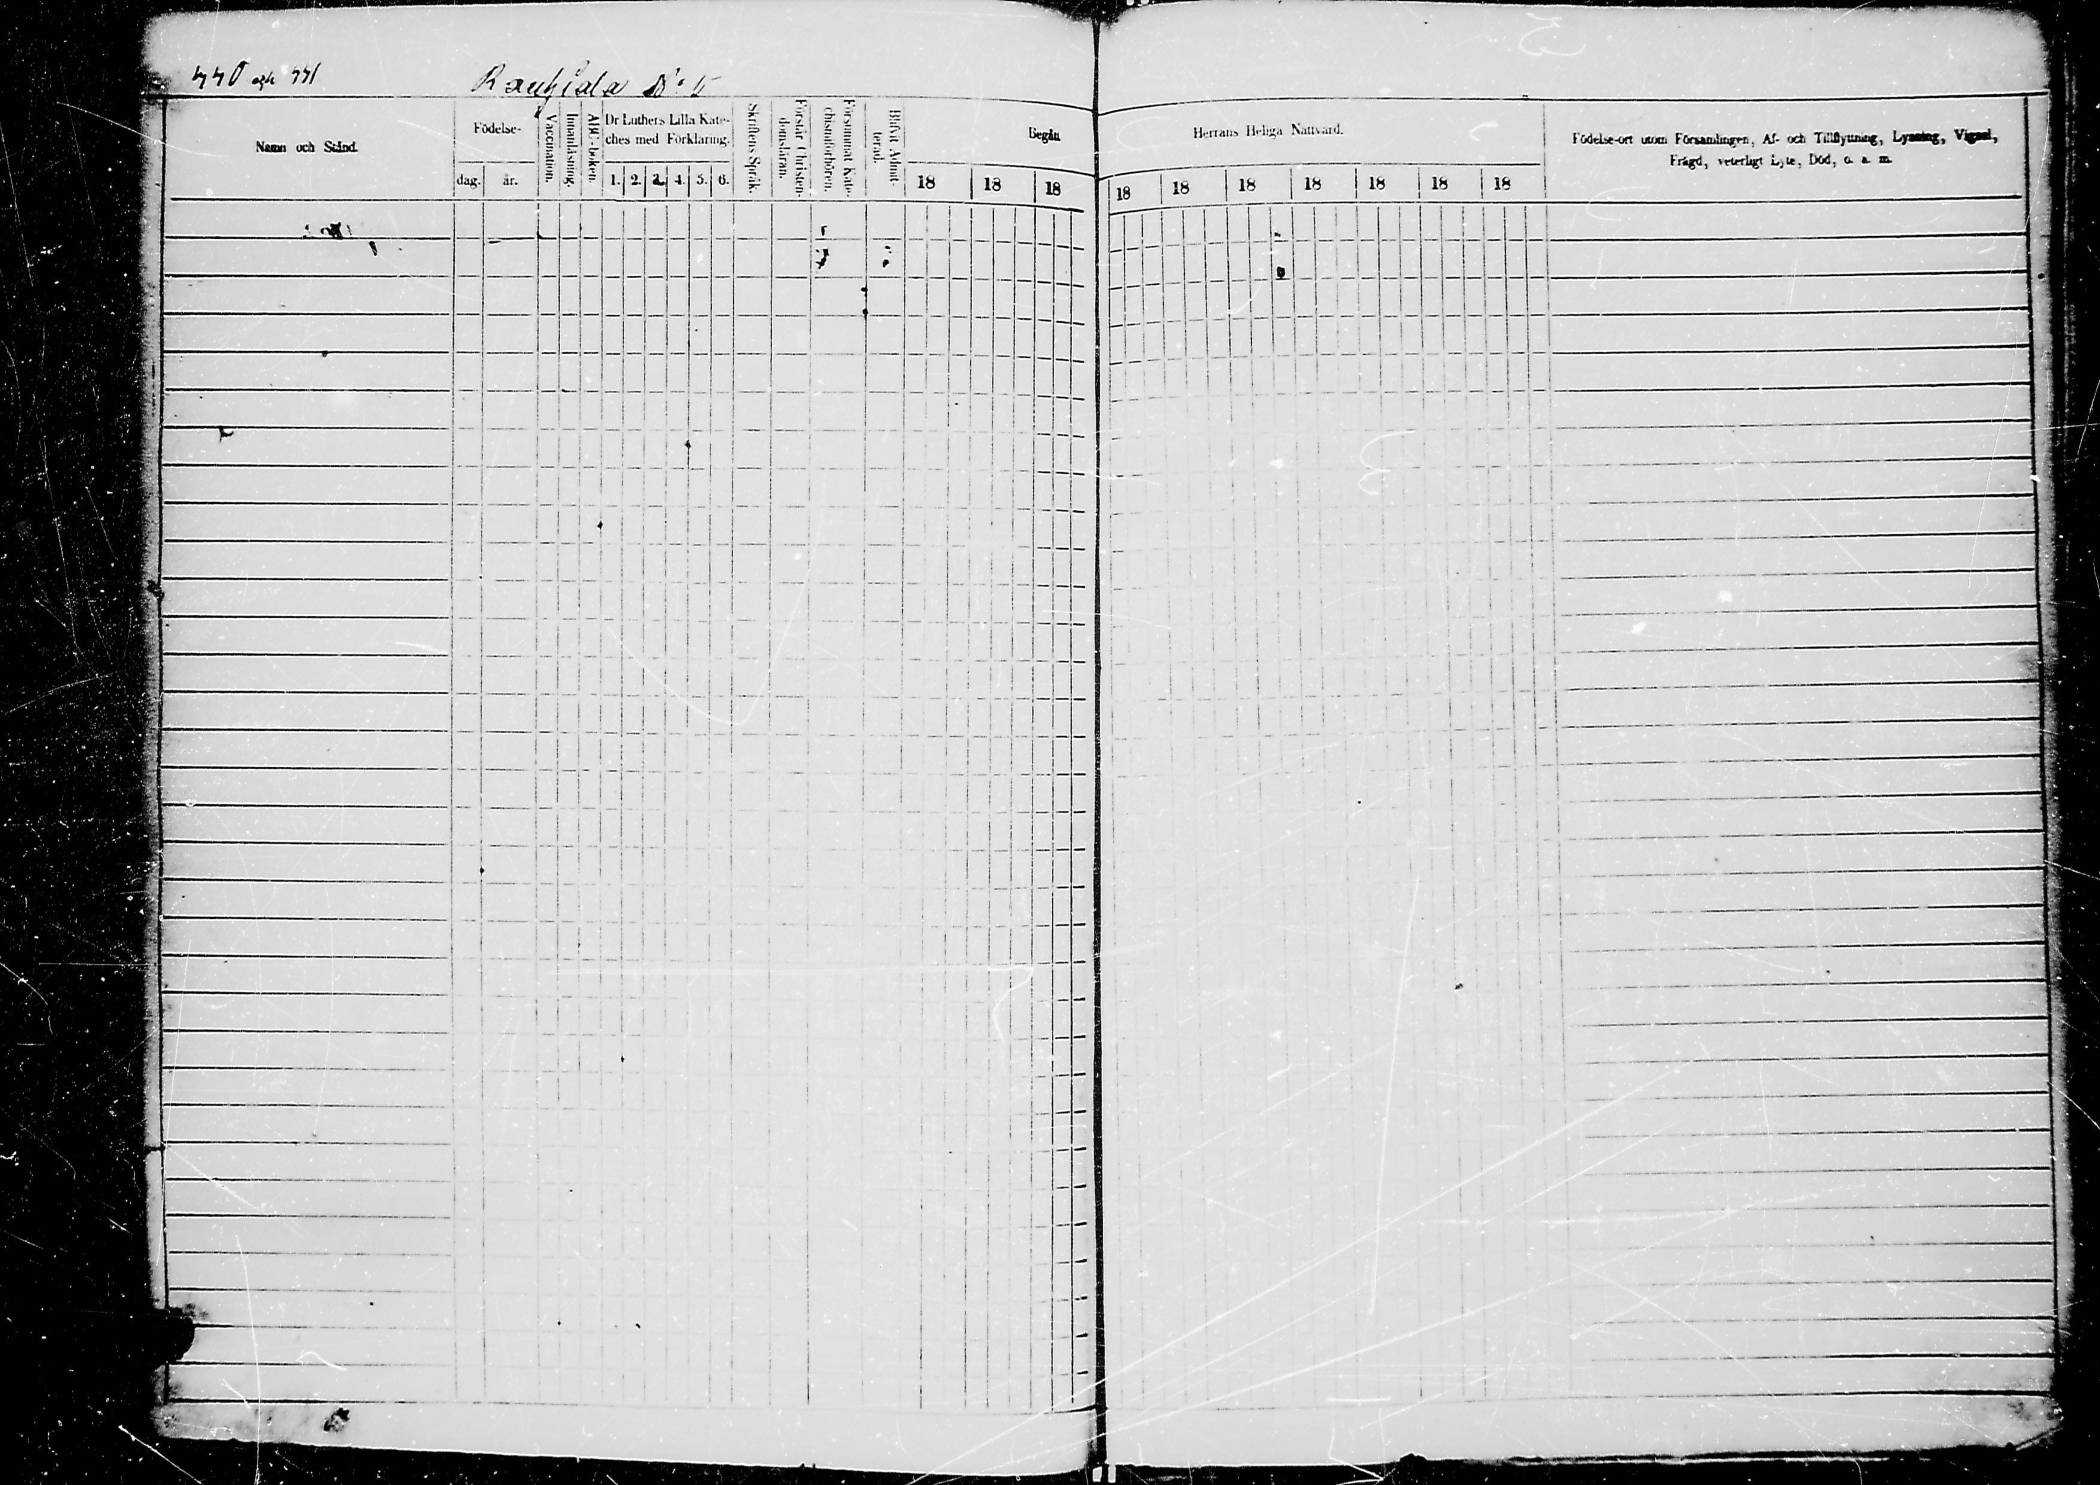 440 och 441
Raukiala No 5
Namn och Stånd.
Födelse-
dag.
år.
Vaccination.
Innanläsning.
ABC-boken.
Dr Luthers Lilla Kate-
ches med Förklaring.
1. 2. 3. 4. 5. 6.
Skriftens Språk.
Förstår Christen-
domsläran.
Försummat Kate-
chismiförhören.
Blifvit Admit-
terad.
Begått
18 18 18
Herrans Heliga Nattvard.
18 18 18 18 18 18 18
Födelse-ort utom Församlingen, Af- och Tillflyttning, Lysning, Vigsel,
Frägd, veterligt Lyte, Död, o. s. m.